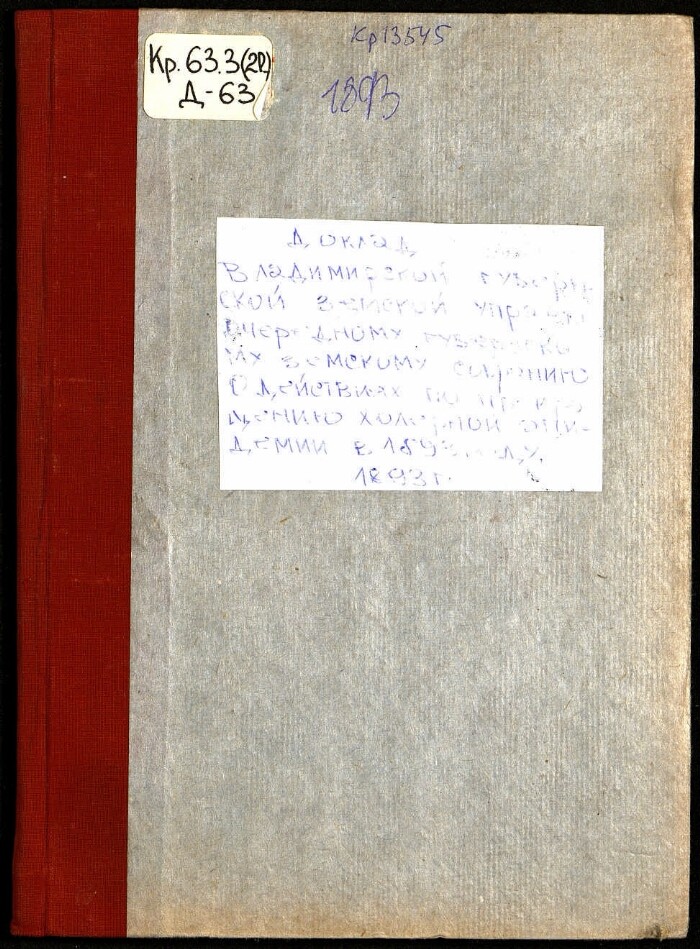 Кр13545
Кр. 63.3(2Р)
Д-63
1893
Доклад
Владимирской губерн
ской земской управы
очередному губернско
му земскому собранию
О действиях по прекра
щению холерной эпи-
демии в 1893
1893 г.